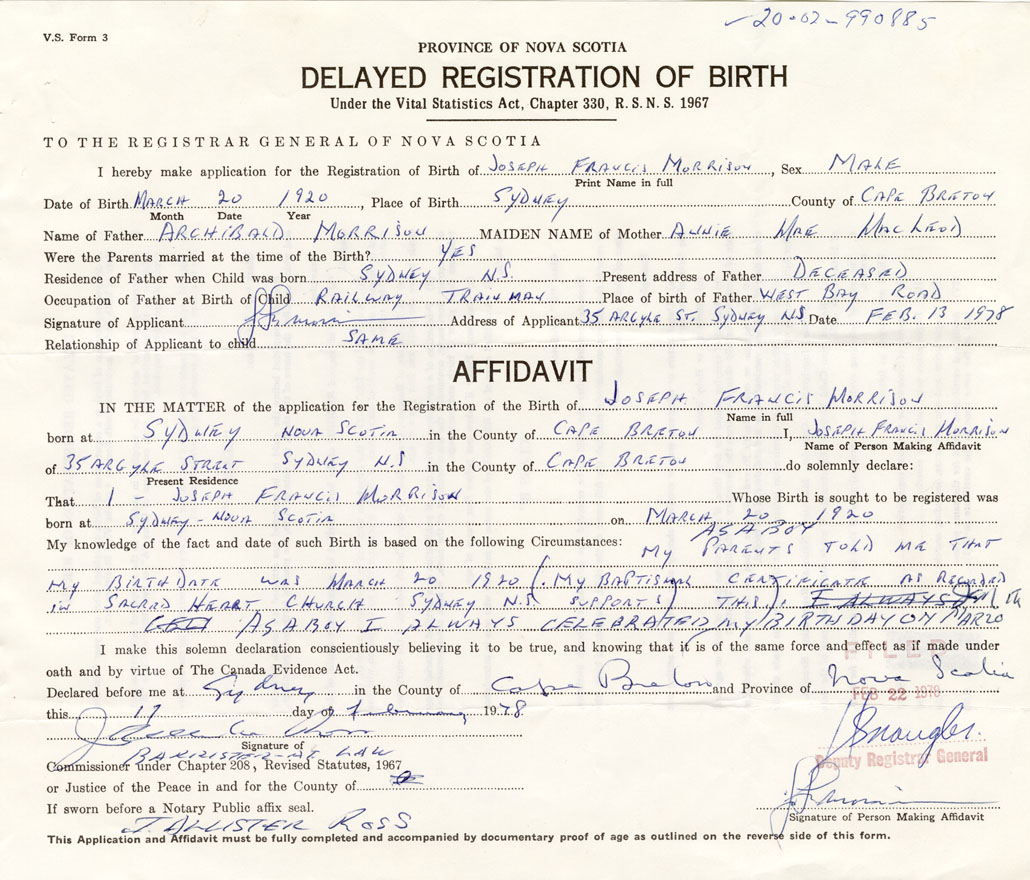 20-02-990885
V.S. Form 3
PROVINCE OF NOVA SCOTIA
DELAYED REGISTRATION OF BIRTH
Under the Vital Statistics Act, Chapter 330, R.S.N.S. 1967
TO THE REGISTRAR GENERAL OF NOVA SCOTIA
I hereby make application for the Registration of Birth of JOSEPH FRANCIS MORRISON, Sex MALE
Print Name in full
Date of Birth MARCH 20 1920, Place of Birth SYDNEY County of CAPE BRETON
Month Date Year
Name of Father ARCHIBALD MORRISON MAIDEN NAME of Mother ANNIE MAE MACLEOD
Were the Parents married at the time of the Birth? YES
Residence of Father when Child was born SYDNEY N.S. Present address of Father DECEASED
Occupation of Father at Birth of Child RAILWAY TRAINMAN Place of birth of Father WEST BAY ROAD
Signature of Applicant Address of Applicant 35 ARGYLE ST. SYDNEY N.S Date FEB. 13 1978
Relationship of Applicant to child SAME
AFFIDAVIT
IN THE MATTER of the application for the Registration of the Birth of JOSEPH FRANCIS MORRISON
Name in full
born at SYDNEY NOVA SCOTIA in the County of CAPE BRETON I, JOSEPH FRANCIS MORRISON
Name of Person Making Affidavit
of 35 ARGYLE STREET SYDNEY N.S in the County of CAPE BRETON do solemnly declare:
Present Residence
That I - JOSEPH FRANCIS MORRISON Whose Birth is sought to be registered was
born at SYDNEY - NOVA SCOTIA on MARCH 20 1920
AS A BOY
My knowledge of the fact and date of such Birth is based on the following Circumstances: MY PARENTS TOLD ME THAT
MY BIRTHDATE WAS MARCH 20 1920 (. MY BAPTISMAL CERTIFICATE AS RECORDED
IN SACRED HEART CHURCH SYDNEY N.S. SUPPORTS) THIS). I ALWAYS
AS A BOY I ALWAYS CELEBRATED MY BIRTHDAY ON MAR 20
I make this solemn declaration conscientiously believing it to be true, and knowing that it is of the same force and effect as if made under
oath and by virtue of The Canada Evidence Act.
FILED
Declared before me at Sydney in the County of Cape Breton and Province of Nova Scotia
FEB 22 1978
this 17 day of February 1978.
Signature of
BARRISTER-AT LAW
Commissioner under Chapter 208, Revised Statutes, 1967
Deputy Registrar General
or Justice of the Peace in and for the County of
If sworn before a Notary Public affix seal.
Signature of Person Making Affidavit
J. ALLISTER ROSS
This Application and Affidavit must be fully completed and accompanied by documentary proof of age as outlined on the reverse side of this form.